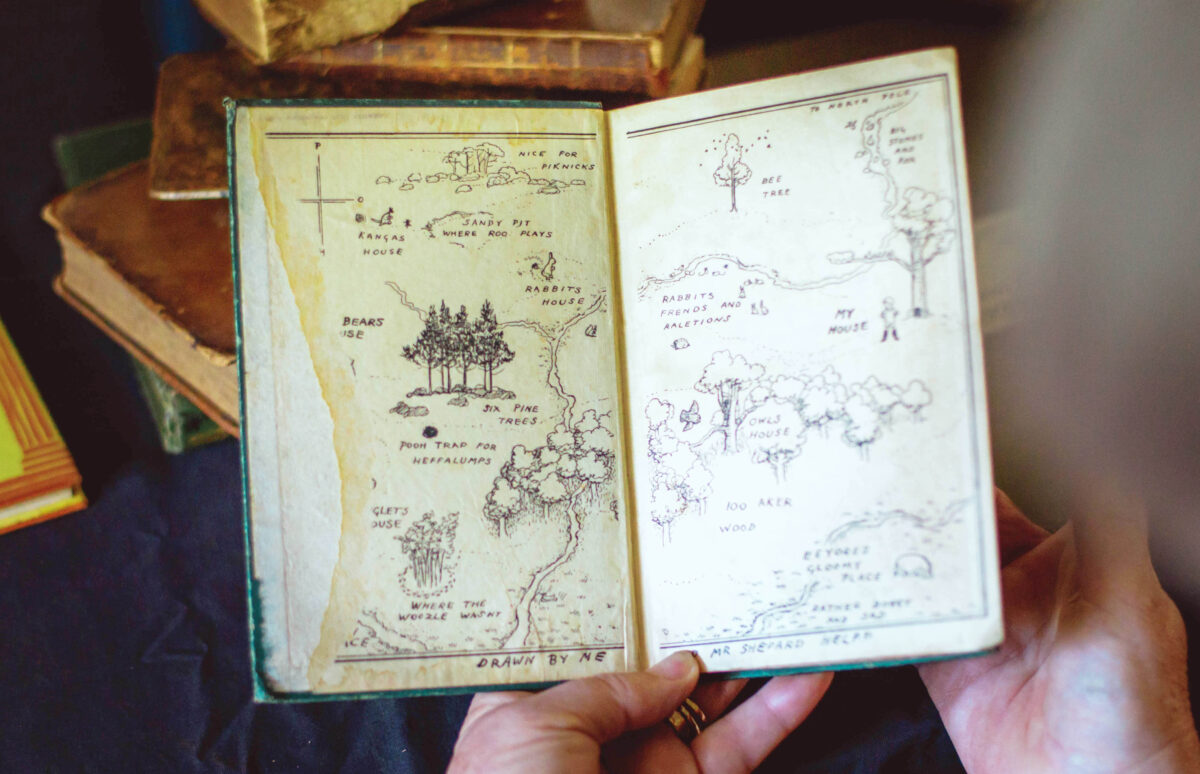 P
O
H
NICE FOR
PIKNICKS
KANGAS
HOUSE
SANDY PIT
WHERE ROO PLAYS
RABBITS
HOUSE
BEARS
SE
SIX PINE
TREES
POOH TRAP FOR
HEFFALUMPS
GLETS
OUSE
WHERE THE
WOOZLE WASNT
ICE
DRAWN BY ME
TO NORTH POLE
BIG
STONES
AND
ROX
BEE
TREE
RABBITS
FRENDS AND
RALETIONS
MY
HOUSE
OWLS
HOUSE
100 AKER
WOOD
EEYORES
GLOOMY
PLACE
RATHER BOGGY
AND SAD
MR SHEPARD HELPD